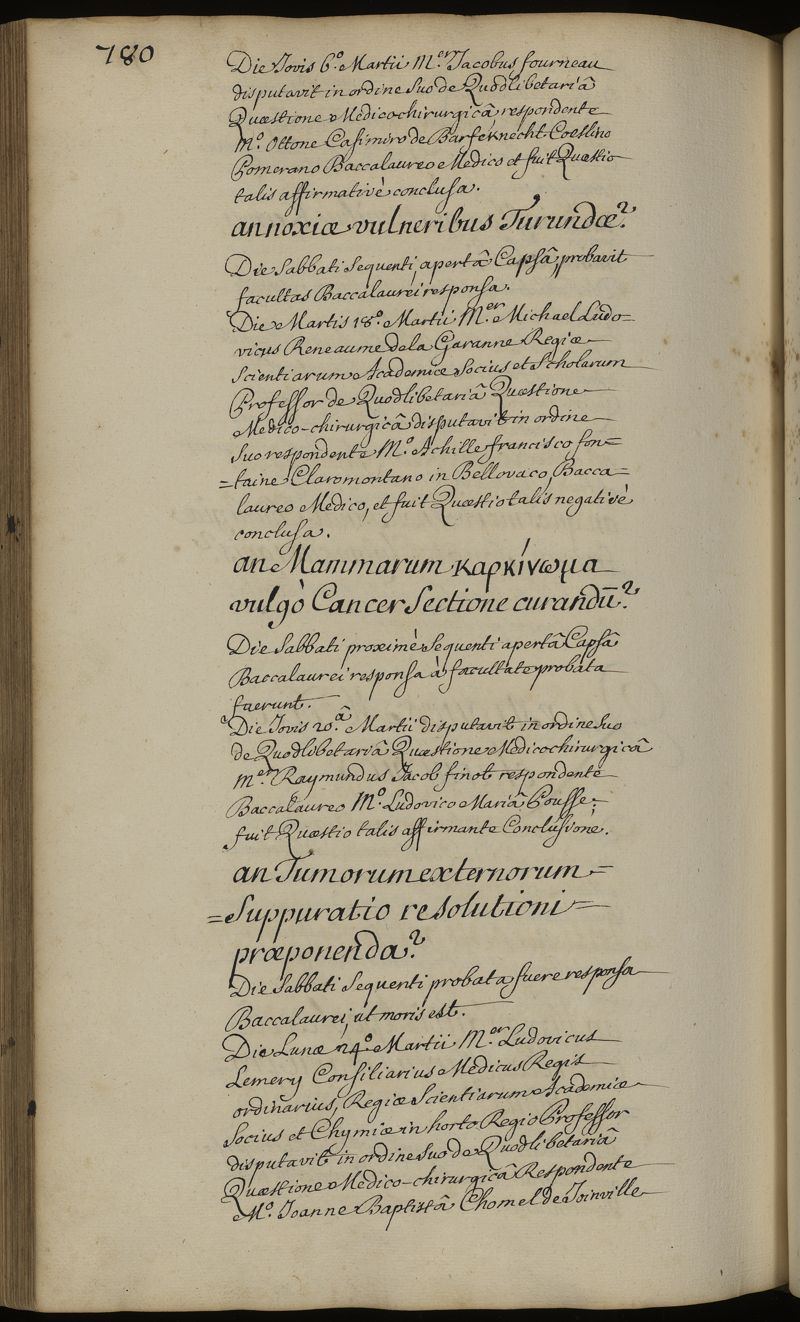 780
Die Jovis 6.º Martii M.er Jacobus fourneau
disputavit in ordine Suo de Quodlibetariâ
Quæstione Medicochirurgicâ respondente
M.º Ottone Casimiro de Barfeknecht Coeslino
Pomerano Baccalaureo Medico et fuit Quæstio
talis affirmativè conclusa.
an noxiæ vulneribus Turundæ?
Die Sabbati Sequenti, apertâ Capsâ, probavit
facultas Baccalaurei responsa.
Die Martis 18º. Martii M.er Michael Ludo=
vicus Reneaume de la Garanne Regiæ
Scientiarum Academiæ Socius et Scholarum
Professor de Quodlibetariâ Quæstione
Medico-chirurgicâ disputavit in ordine
Suo respondente M.º Achille francisco fon=
=taine Claromontano in Bellovaco, Bacca=
laureo Medico, et fuit Quæstio talis negativè
conclusa.
an Mammarum καρκίνωμα
vulgò Cancer Sectione curandū?
Die Sabbati proximè Sequenti apertâ Capsâ
Baccalaurei responsa à facultate probata
fuerunt.
Die Jovis 20.â Martii disputavit in ordine Suo
de Quodlibetariâ Quæstione Medicochirurgicâ
M.er Raymundus Jacob finot respondente
Baccalaureo M.º Ludovico Mariâ Pousse;
fuit Quæstio talis affirmante Conclusione.
an Tumorum externorum=
=Suppuratio resolutioni=
præponenda?
Die Sabbati Sequenti probata fuere responsa
Baccalaurei, ut moris est.
Die Lunæ 24º. Martii M.er Ludovicus
Lemery Consiliarius Medicus Regis
ordinarius, Regiæ Scientiarum Academiæ
Socius et Chymiæ in horto Regio Professor
disputavit in ordine Suo de Quodlibetariâ
Quæstione Medico-chirurgicâ Respondente
M.º Joanne Baptistâ Chomel de Joinville